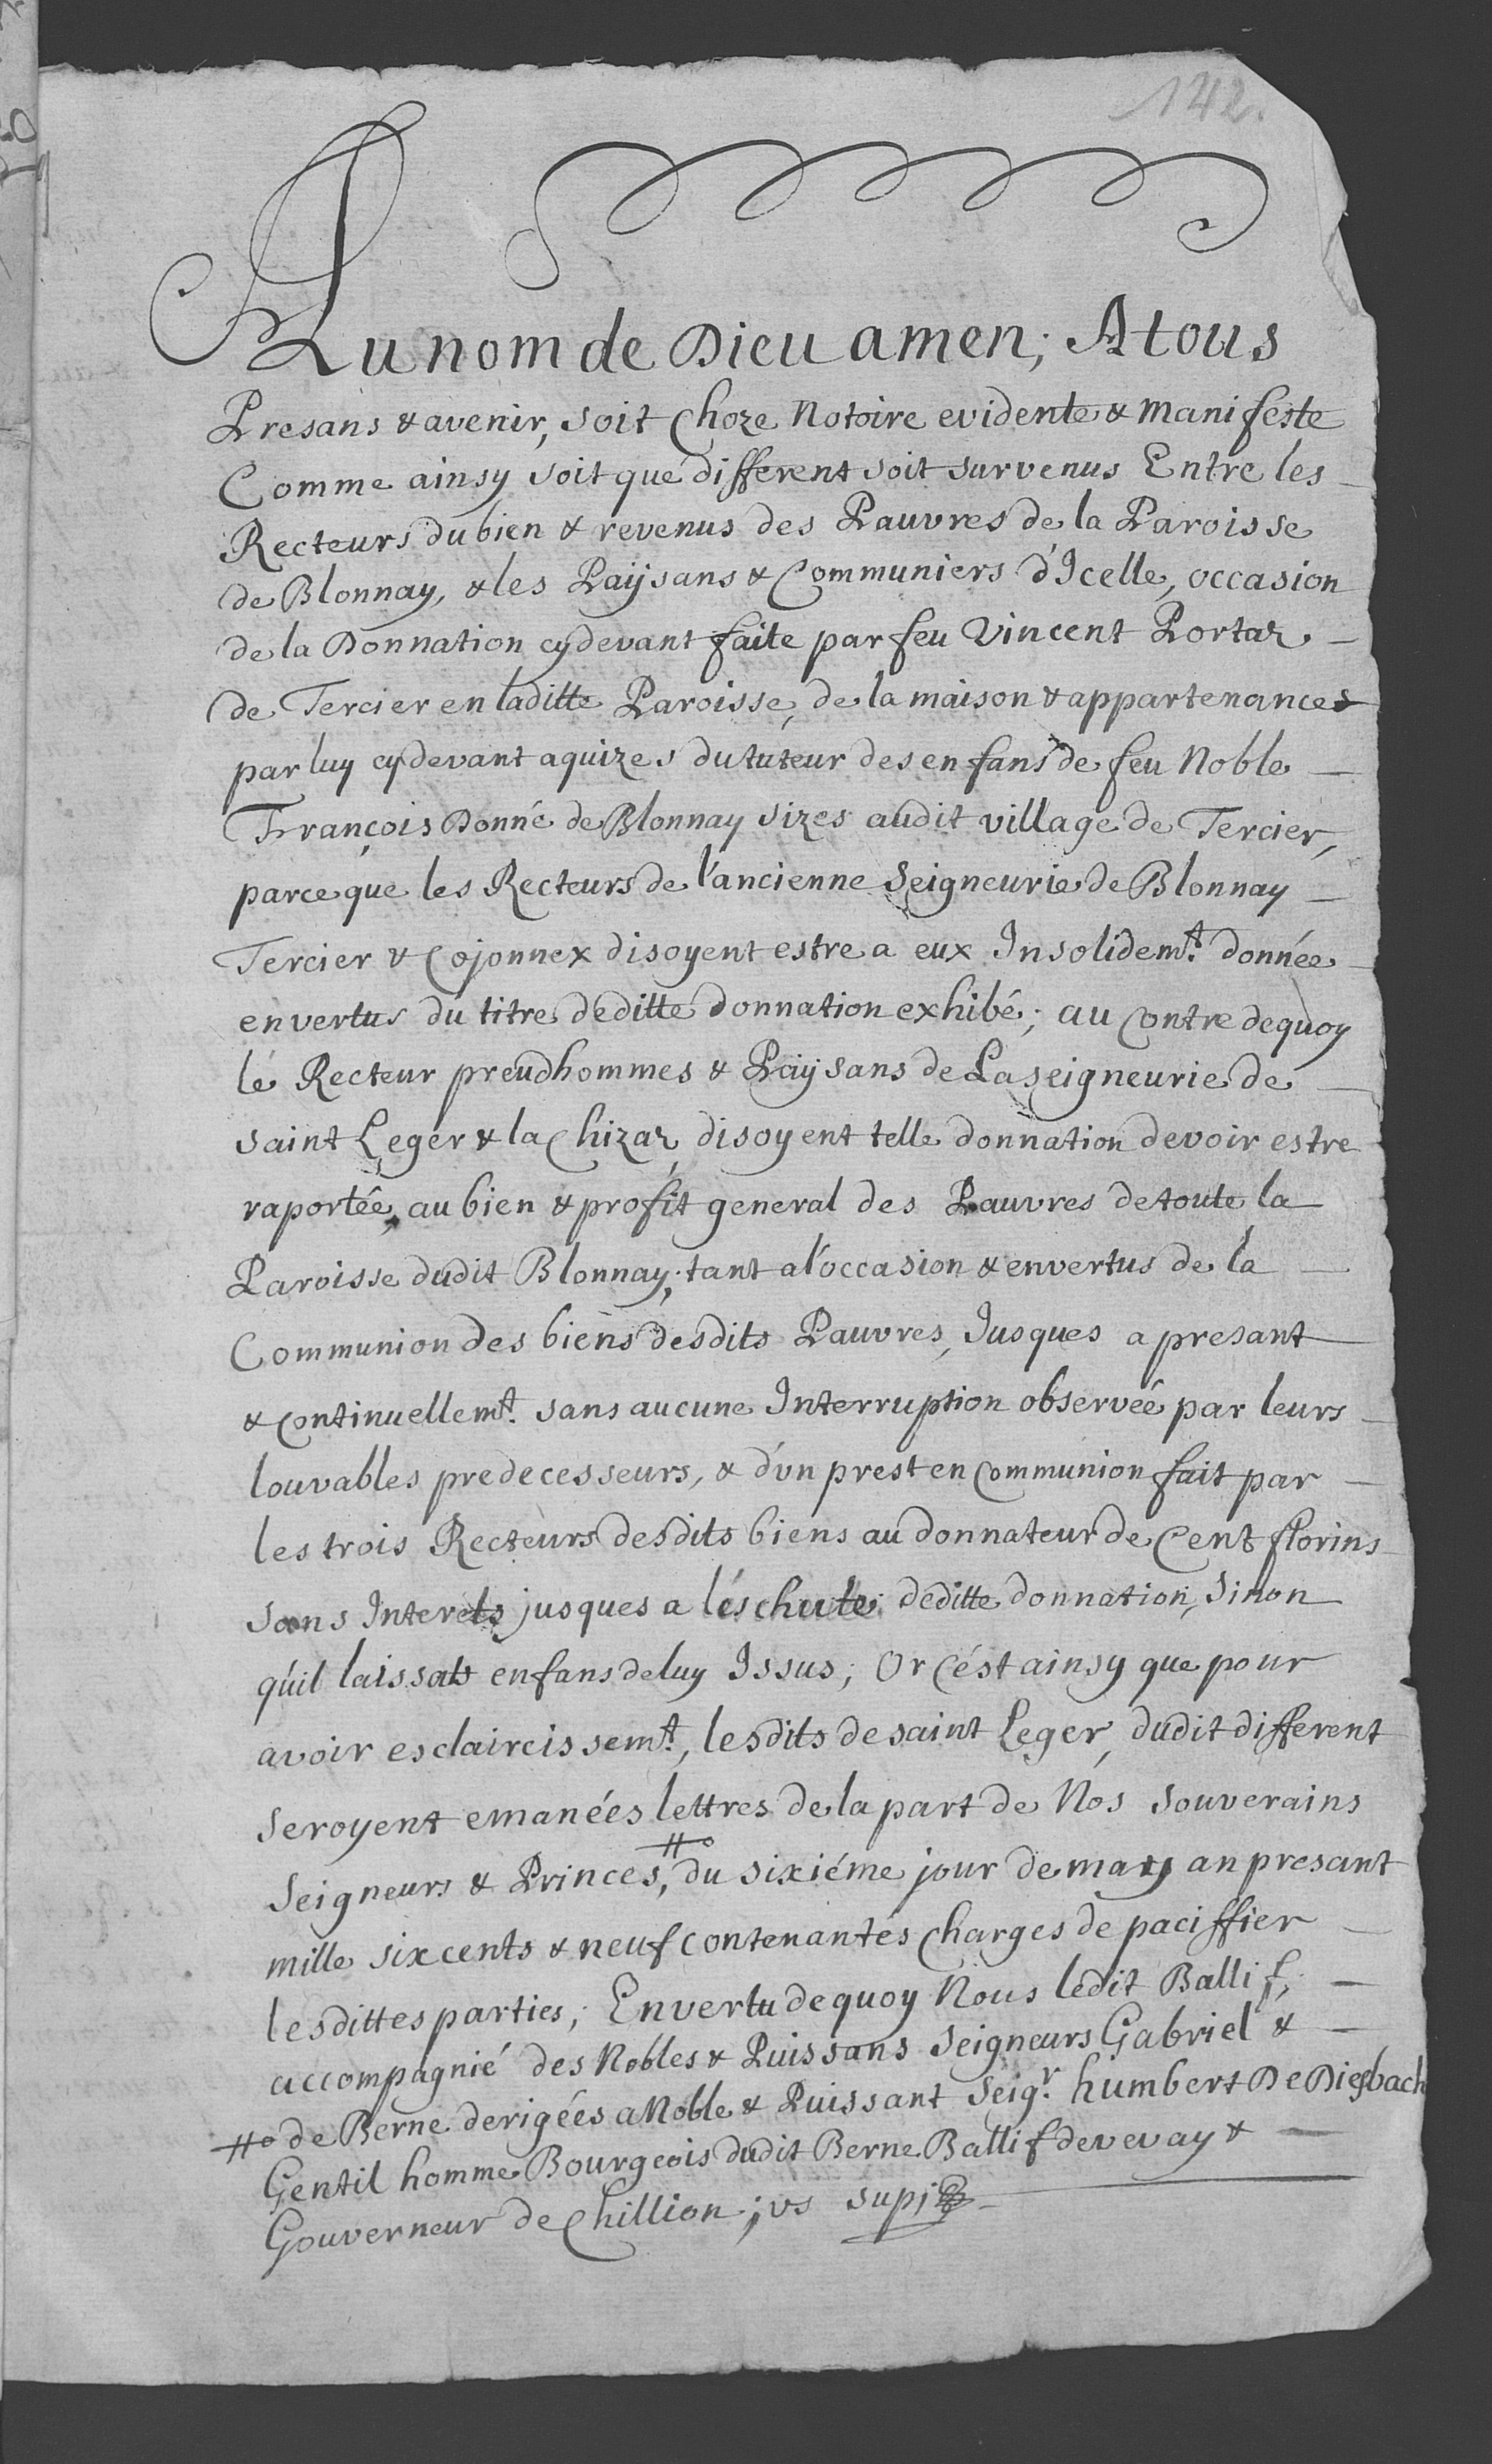 142.
Au nom de Dieu amen; A tous
Presans & avenir, soit Choze Notoire evidente & Manifeste
Comme ainsy soit que different soit survenus Entre les
Recteurs du bien & revenus des Pauvres de la Paroisse
de Blonnay, & les Païjsans & Communiers d'Icelle, occasion
de la Donnation cydevant faite par feu Vincent Portaz
de Tercier en laditte Paroisse, de la maison & appartenances
par luy cydevant aquizes du tuteur des enfans de feu Noble
François Donné de Blonnay sizes audit village de Tercier,
parce que les Recteurs de l'ancienne Seigneurie de Blonnay
Tercier & Cojonnex disoyent estre a eux Insolidemt. donnée
en vertus du titre deditte donnation exhibé; au Contre dequoy
le Recteur preudhommes & Païjsans de La seigneurie de
saint Leger & la Chizaz disoyent telle donnation devoir estre
raportée, au bien & profit general des Pauvres de toute la
Paroisse dudit Blonnay; tant a l'occasion & en vertus de la
Communion des biens desdits Pauvres, Jusques a presant
& Continuellemt. sans aucune Interruption observée par leurs
louvables predecesseurs, & d'un prest en Communion fait par
les trois Recteurs desdits biens au donnateur de Cent florins
sans Interets jusques a l'éschute deditte donnation, Sinon
qu'il laissat enfans de luy Issus; Or C'ést ainsy que pour
avoir esclaircissemt., lesdits de saint Leger, dudit different
seroyent emanées lettres de la part de Nos Souverains
Seigneurs & Princes, #° du sixiéme jour de may an presant
mille six cents & neuf contenantes Charges de paciffier
lesdittes parties; En vertu dequoy Nous ledit Ballif,
accompagnié des Nobles & Puissans Seigneurs Gabriel &
#° de Berne derigées a Noble & Puissant Seigr. humbert De Diesbach
Gentil homme Bourgeois dudit Berne Ballif de vevay &
Gouverneur de Chillion; vs sup